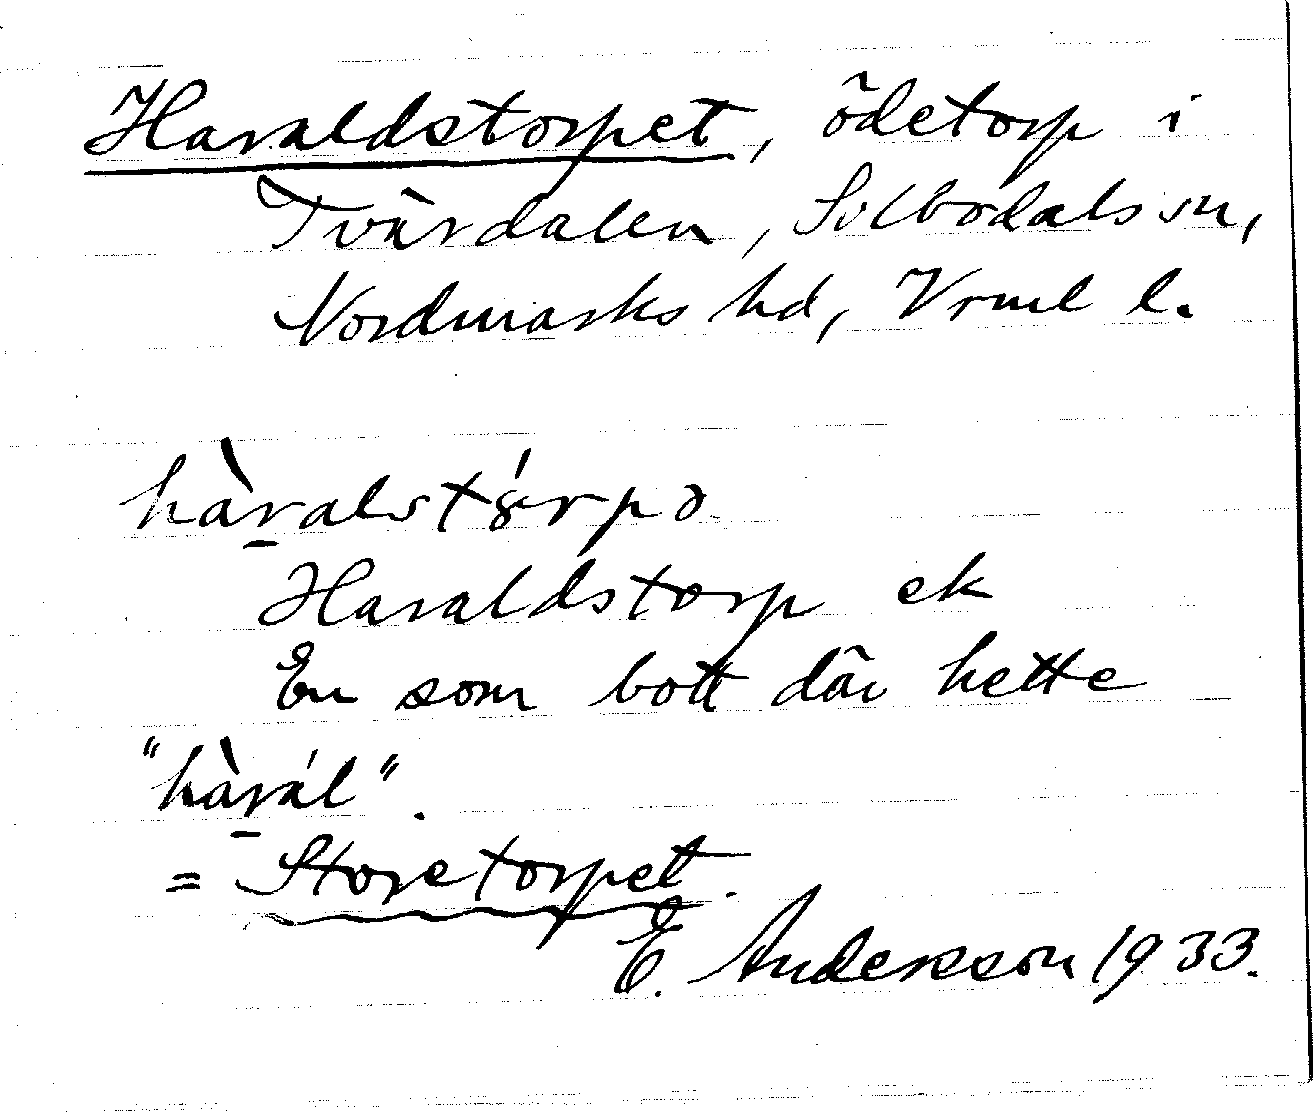 Haraldstorpet, ödetorp i
Tvärdalen, Silbodals sn,
Nordmarks hd, Vrml l.
Haraldstorp ek
En som bott där hette
"hàrál".
= Storetorpet.
E. Andersson 1933.